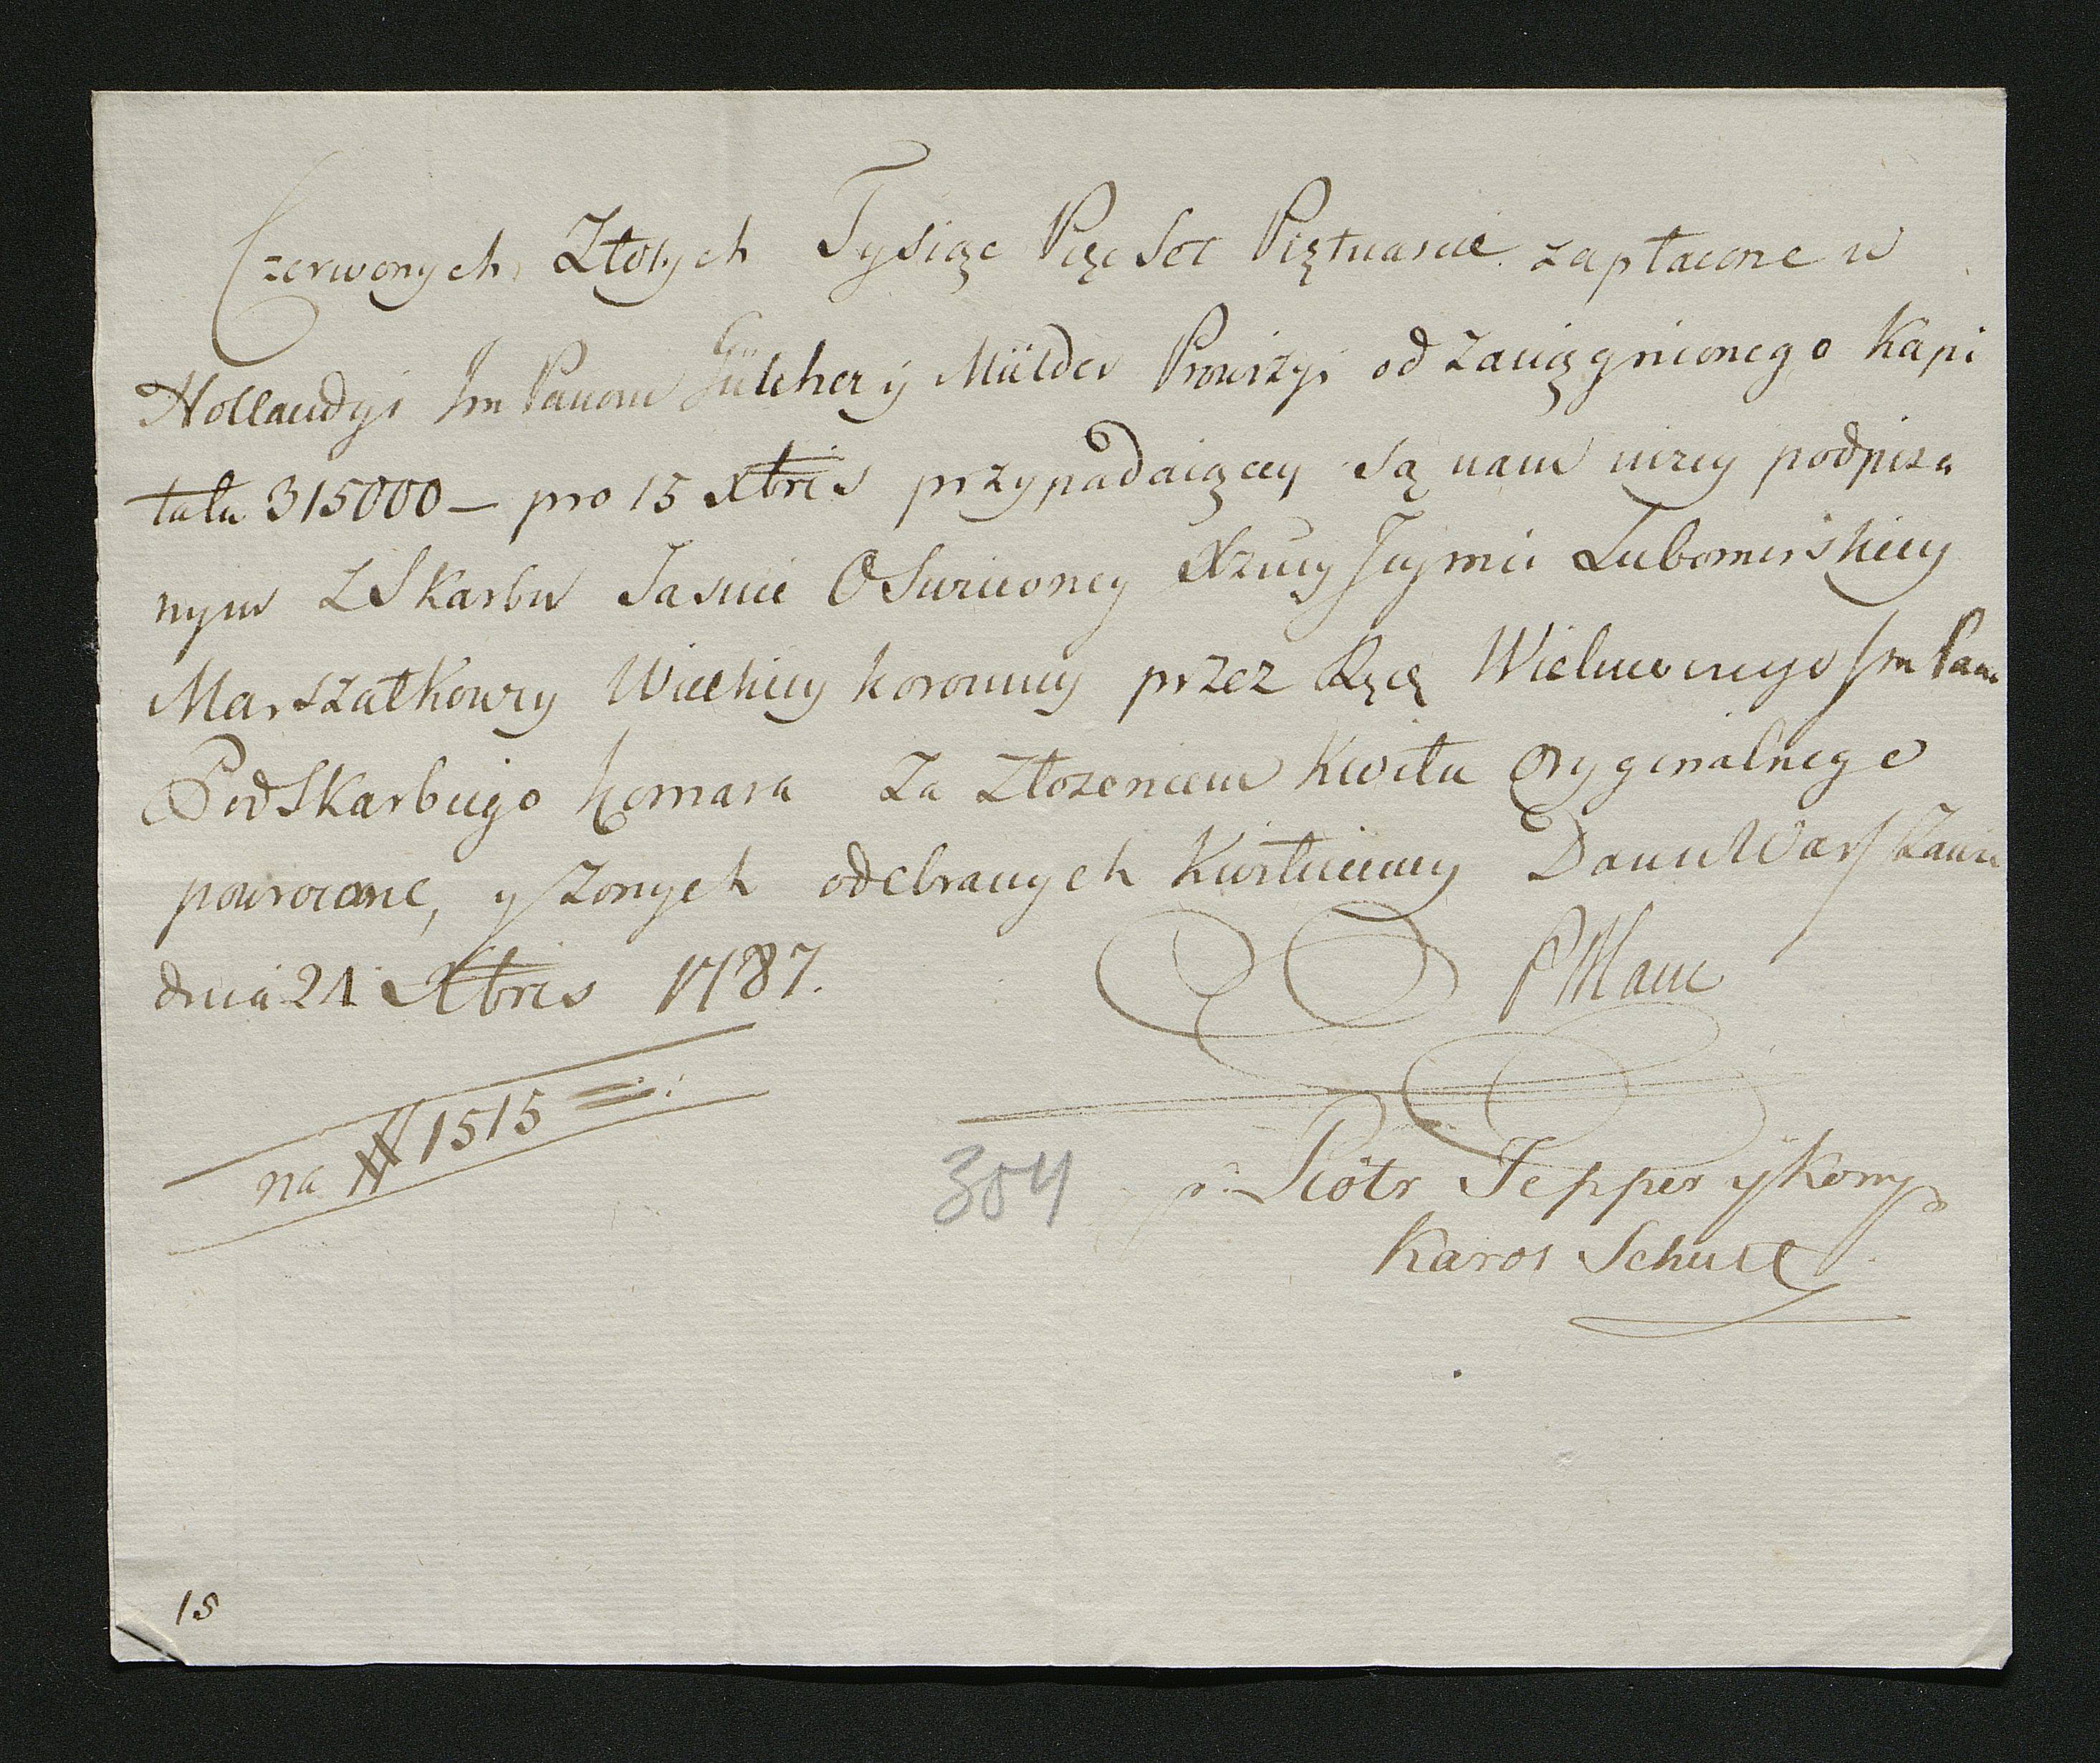 Czerwonych Złotych Tysiąc Pięc Set Piętnascie zapłacone w
Hollandyi Jm Panom Gülcher ÿ Mülder Prowizyi od zaciągnionego Kapi
tału 315000 – pro 15 Xbris przypadaiącey są nam niżey podpisa
nym z Skarbu Jasnie OSwieconey Xżney Jeymci Lubomirskiey
Marszałkowey Wielkiey koronney przez Ręcę Wielmożnego Jm Pana
PodSkarbiego Komara za złozeniem Kwitu Oryginalnego
powrocone, y z onych odebranych Kwituiemy Dan w Warszawie
dnia 21 Xbris 1787.
PMauc
na # 1515
304
p: Piotr Tepper ÿ Komp
Karol Schultz
15